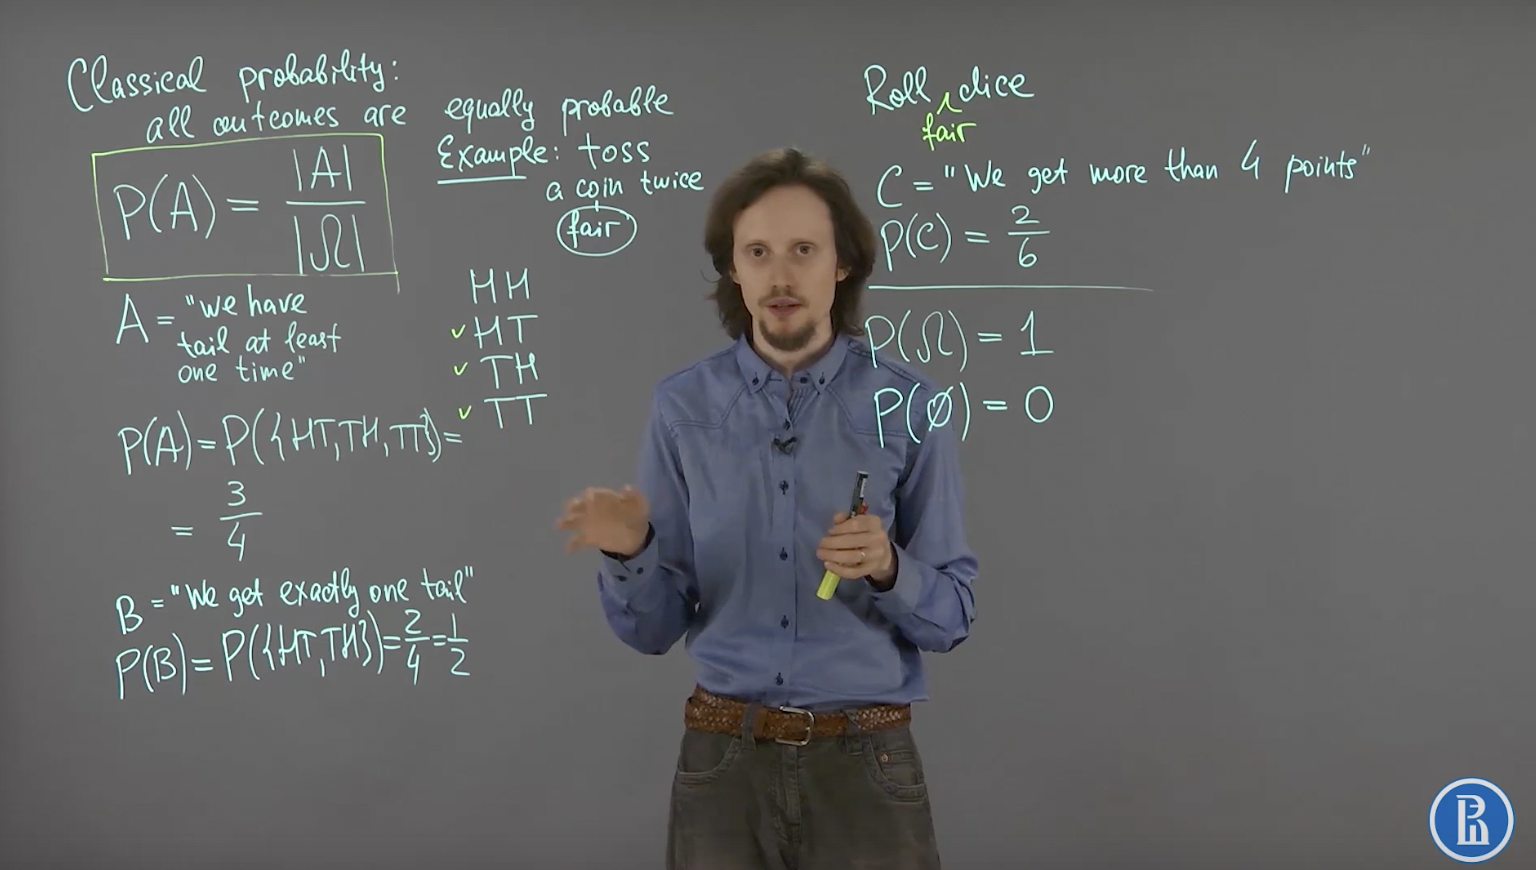 Classical probability:
all outcomes are equally probable
P(A) = |A| / |Ω|
Example: toss
a coin twice
fair
HH
✓ HT
✓ TH
✓ TT
A = "we have
tail at least
one time"
P(A) = P({HT, TH, TT}) =
= 3/4
B = "We get exactly one tail"
P(B) = P({HT, TH}) = 2/4 = 1/2
Roll dice
fair
C = "We get more than 4 points"
P(C) = 2/6
P(Ω) = 1
P(Ø) = 0